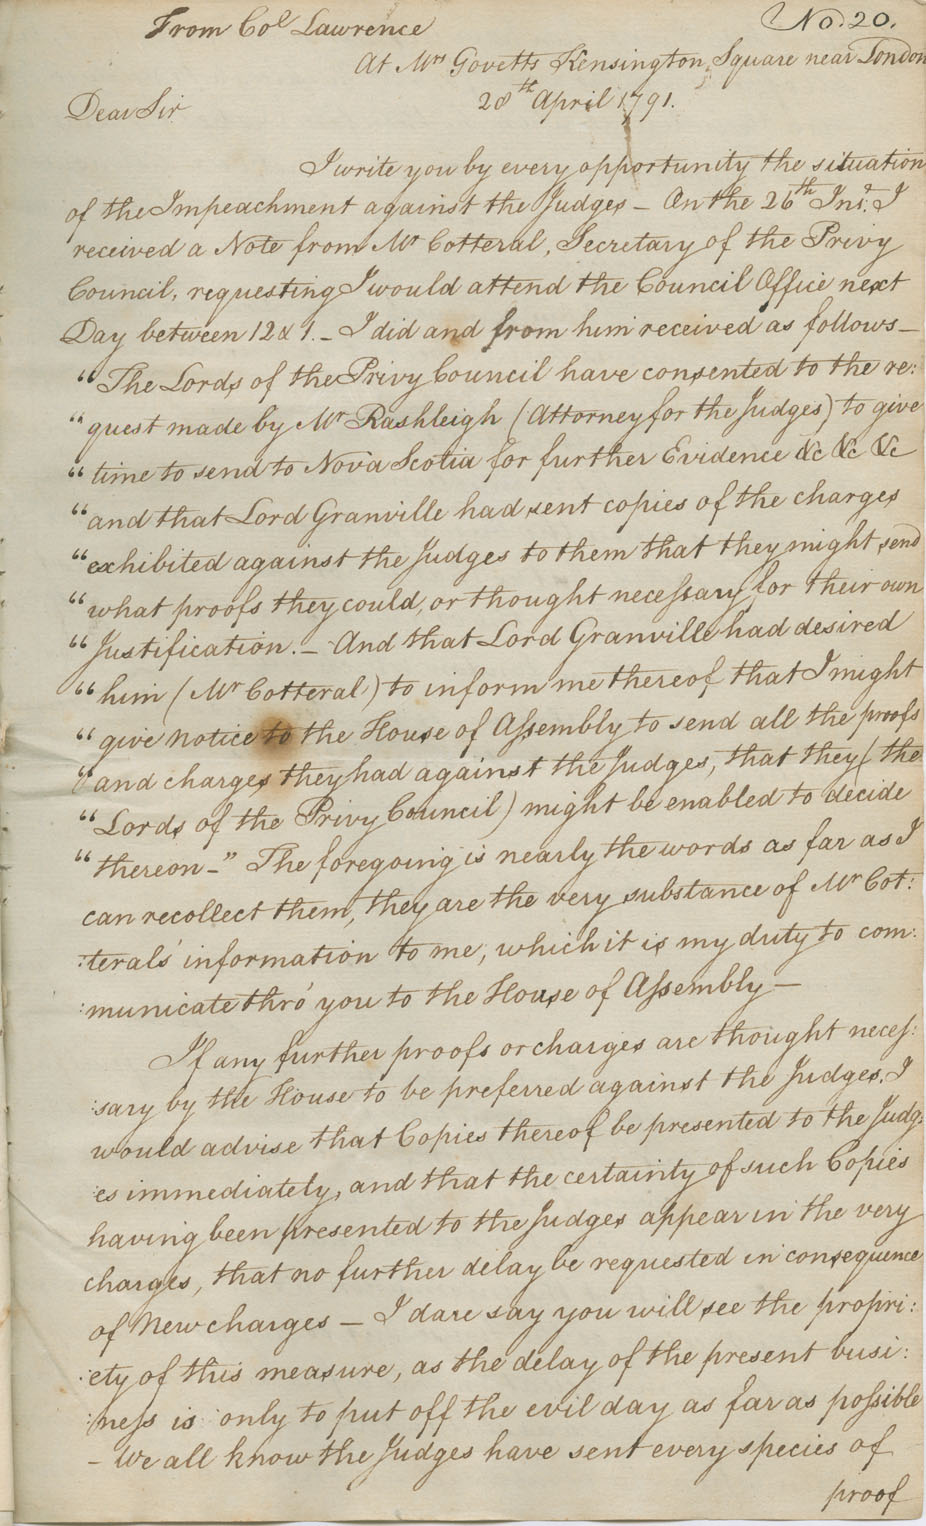 From Colˡ Lawrence
No. 20.
At Mrs Govetts Kensington Square near London
28th April 1791.
Dear Sir
I write you by every opportunity the situation
of the Impeachment against the Judges – On the 26th Inst. I
received a Note from Mr Cotteral, Secretary of the Privy
Council, requesting I would attend the Council Office next
Day between 12 & 1. – I did and from him received as follows –
“The Lords of the Privy Council have consented to the re:
“quest made by Mr Rashleigh (Attorney for the Judges) to give
“time to send to Nova Scotia for further Evidence &c &c &c
“and that Lord Granville had sent copies of the charges
“exhibited against the Judges to them that they might send
“what proofs they could, or thought necessary for their own
“Justification. – And that Lord Granville had desired
“him (Mr Cotteral) to inform me thereof that I might
“give notice to the House of Assembly to send all the proofs
“and charges they had against the Judges, that they (the
“Lords of the Privy Council) might be enabled to decide
“thereon –” The foregoing is nearly the words as far as I
can recollect them, they are the very substance of Mr Cot:
:terals' information to me, which it is my duty to com:
:municate thro' you to the House of Assembly –
If any further proofs or charges are thought neces:
:sary by the House to be preferred against the Judges. I
would advise that Copies thereof be presented to the Judg:
:es immediately, and that the certainty of such Copies
having been presented to the Judges appear in the very
charges, that no further delay be requested in consequence
of New charges – I dare say you will see the propri:
:ety of this measure, as the delay of the present busi:
:ness is only to put off the evil day as far as possible
– We all know the Judges have sent every species of
proof